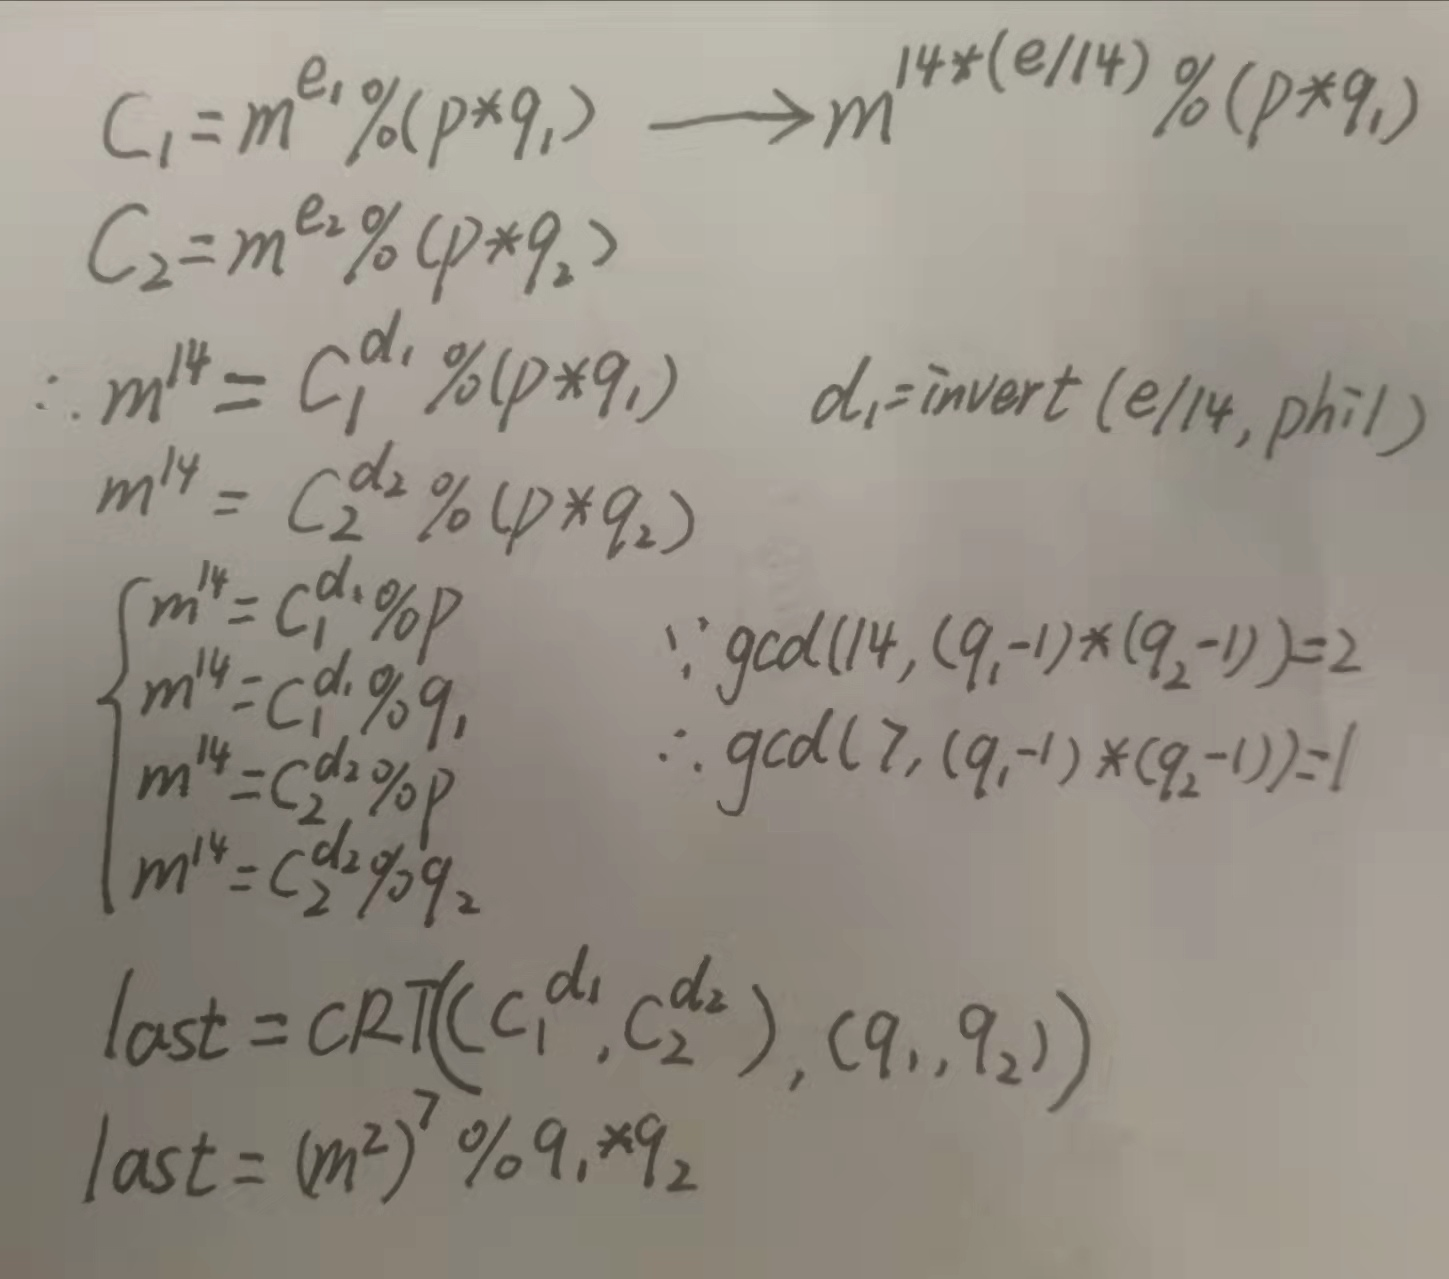 C₁=m^e₁%(p*q₁) → m^14*(e/14)%(p*q₁)
C₂=m^e₂%(p*q₂)
∴ m^14=C₁^d₁%(p*q₁) d₁=invert(e/14,phi1)
m^14=C₂^d₂%(p*q₂)
m^14=C₁^d₁%p
m^14=C₁^d₁%q₁ ∵gcd(14,(q₁-1)*(q₂-1))=2
m^14=C₂^d₂%p ∴gcd(7,(q₁-1)*(q₂-1))=1
m^14=C₂^d₂%q₂
last=CRT((C₁^d₁,C₂^d₂),(q₁,q₂))
last=(m²)⁷%q₁*q₂